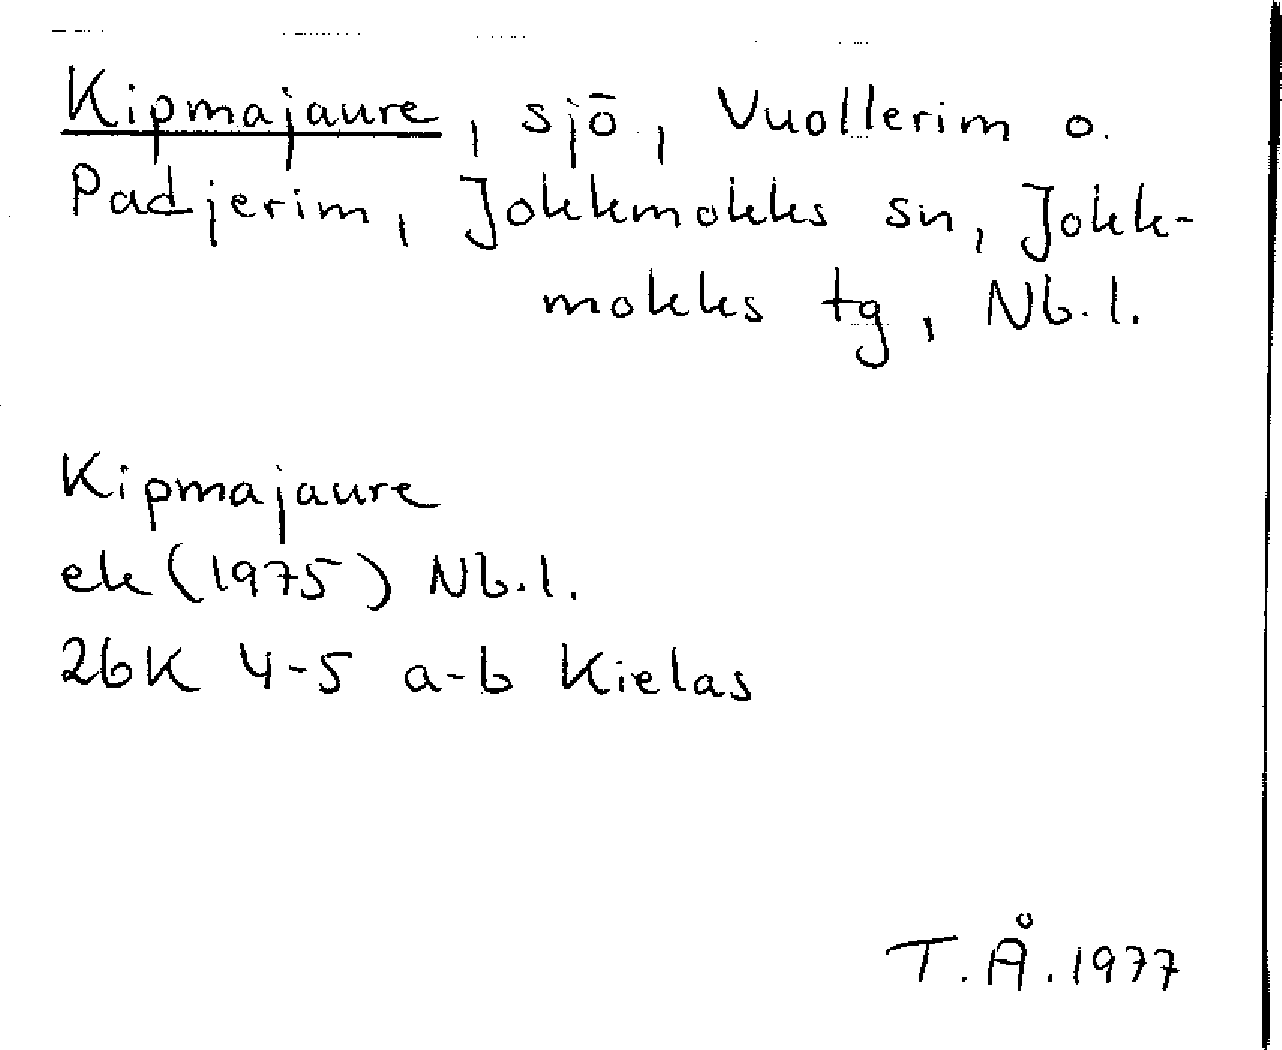 Kipmajaure, sjö, Vuollerim o.
Padjerim, Jokkmokks sn, Jokk-
mokks tg, Nb.l.
Kipmajaure
ek (1975) Nb.l.
26K 4-5 a-b Kielas
T.Å.1977